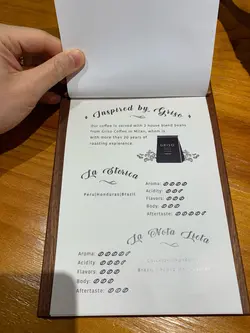 Inspired by Griso
Our coffee is served with 2 house blend beans
from Griso Coffee in Milan, which is
With more than 20 years of
roasting experience.
GRISO
La Storica
Peru|Honduras|Brazil
Aroma:
Acidity:
Flavors:
Body:
Aftertaste:
La Nota Lieta
Aroma:
Acidity:
Flavors:
Body:
Aftertaste: